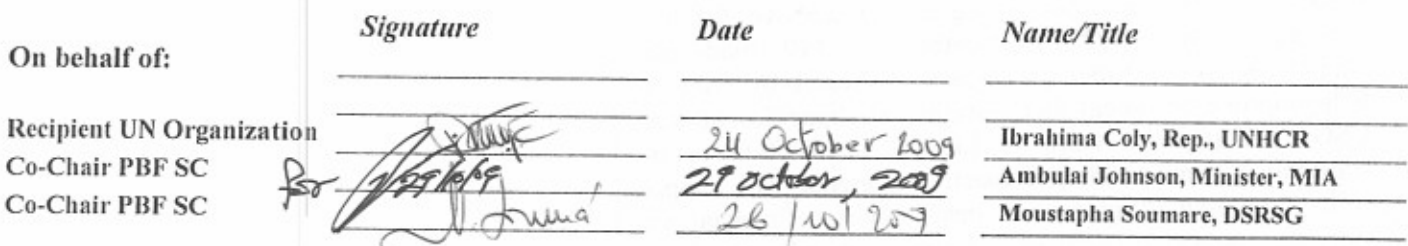 Signature Date Name/Title
On behalf of:
Recipient UN Organization 24 October 2009 Ibrahima Coly, Rep., UNHCR
Co-Chair PBF SC for 29/10/09 29 October, 2009 Ambulai Johnson, Minister, MIA
Co-Chair PBF SC 26/10/209 Moustapha Soumare, DSRSG